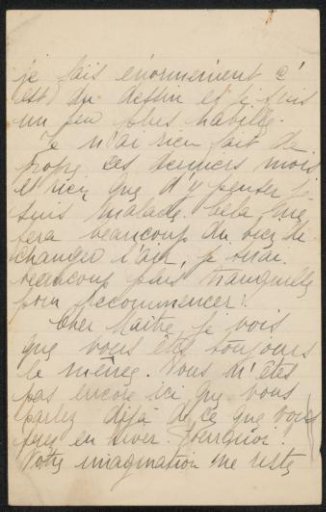 je fais énormément c'
est du dessin et je suis
un peu plus habile.
Je n'ai rien fait de
propre ces derniers mois
et rien que d'y penser je
suis malade. Cela me
fera beaucoup du bien de
changer l'air, je serai
beaucoup plus tranquille
pour recommencer!
Cher Maître, je vois
que vous êtes toujours
le même. Vous n'êtes
pas encore ici que vous
parlez déjà de ce que vous
ferez en hiver. Pourquoi?
Votre imagination me reste